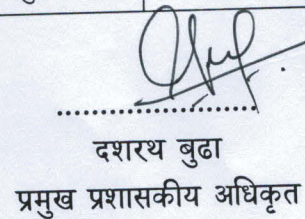 दशरथ बुढा
प्रमुख प्रशासकीय अधिकृत